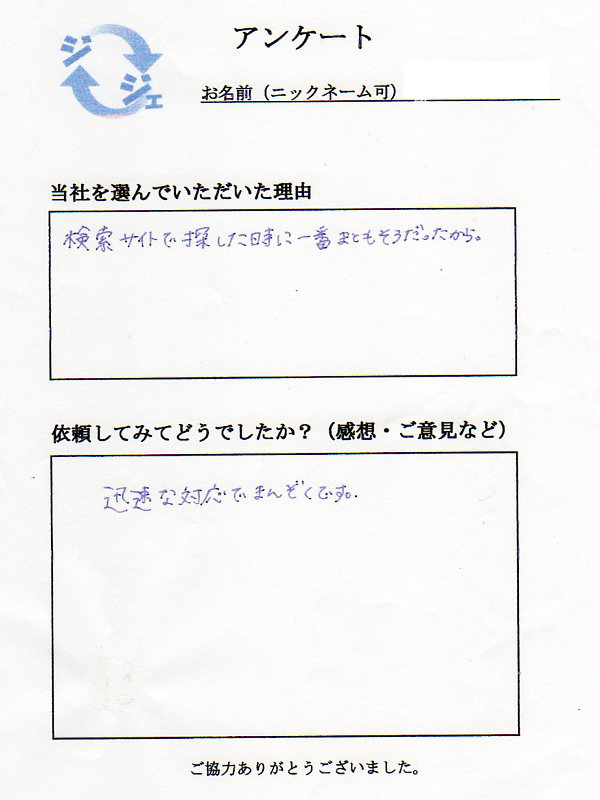 アンケート
ジジェ
お名前（ニックネーム可）
当社を選んでいただいた理由
検索サイトで探した時に一番まともそうだったから。
依頼してみてどうでしたか？（感想・ご意見など）
迅速な対応でまんぞくです。
ご協力ありがとうございました。